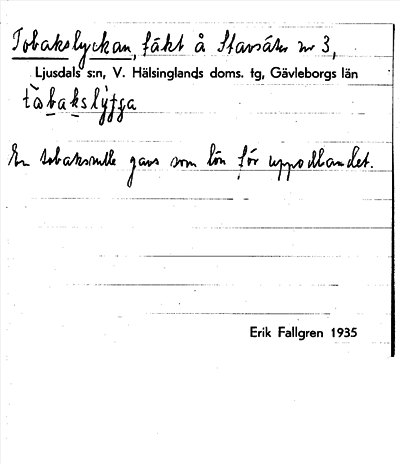 Tobakslyckan, täkt å Stavsäter nr 3,
Ljusdals s:n, V. Hälsinglands doms. tg, Gävleborgs län
En tobaksrulle gavs som lön för uppodlandet.
Erik Fallgren 1935